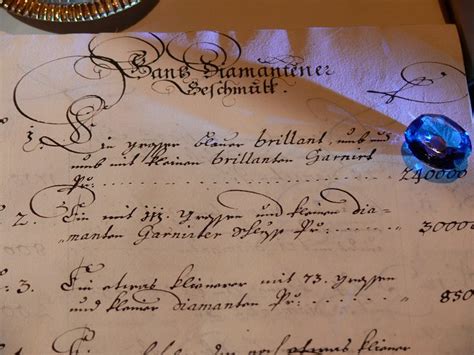 Gantz Diamantener
Geschmuck.
1. Ein grosser blauer brillant, umb und
umb mit kleinen brillanten Garnirt
Pr: 240000
2. Ein mit 111. grossen und kleinen dia-
manten Garnirter Pr: 3000
3. Ein etwas kleinerer mit 73. grossen
und kleiner diamanten Pr: 850
etwas kleiner